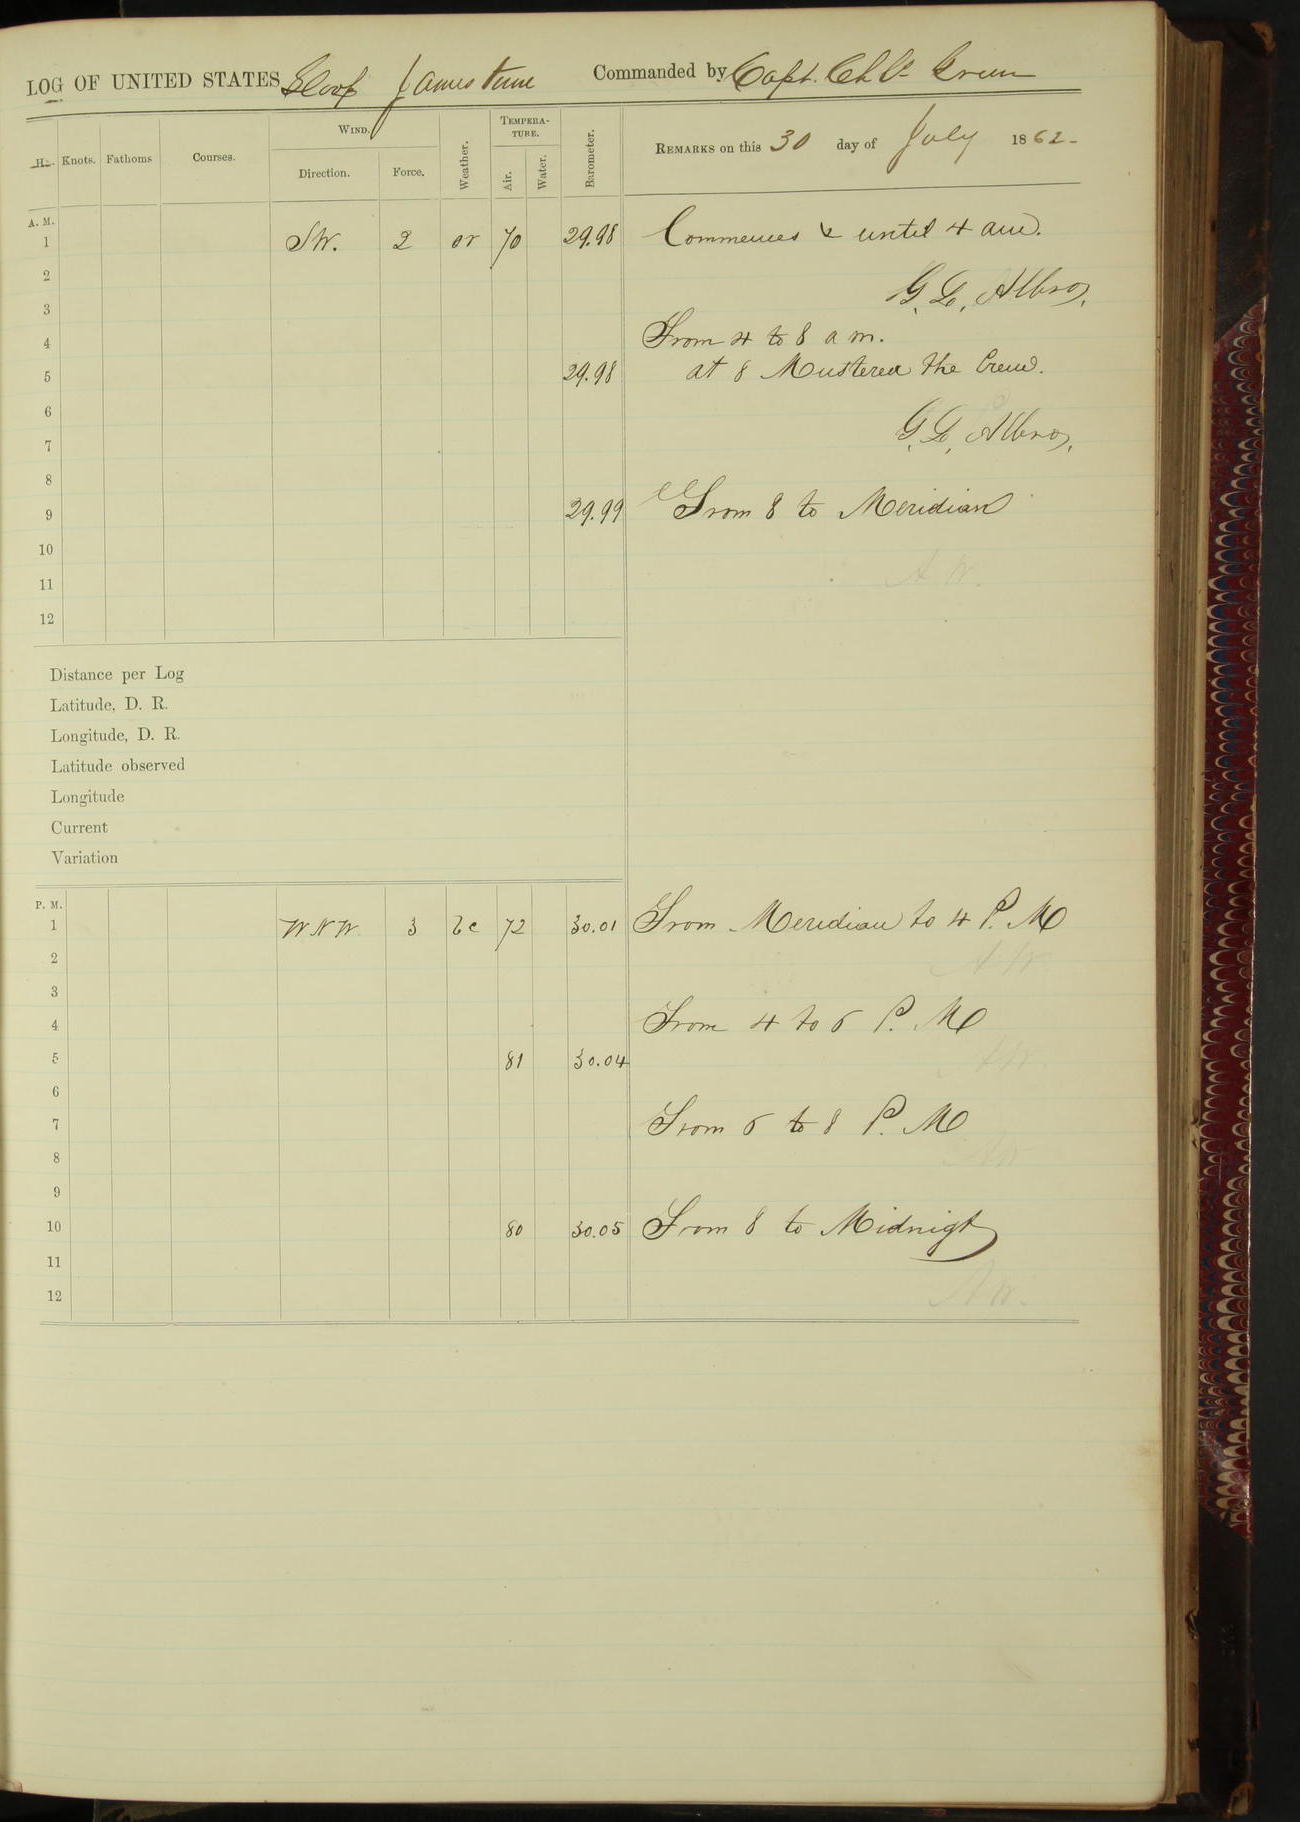 LOG OF UNITED STATES Sloop Jamestown Commanded by Capt. Chs Green
H. Knots. Fathoms Courses. WIND. Direction. Force. Weather. TEMPERATURE. Air. Water. Barometer. REMARKS on this 30 day of July 1862-
A. M.
1 SW. 2 or 70 29.98 Commences & until 4 am.
2
G. L. Albro,
3
4 From 4 to 8 a m.
5 29.98 at 8 Mustered the Crew.
6
G. L. Albro,
7
8
9 29.99 From 8 to Meridian
10
11 A W.
12
Distance per Log
Latitude, D. R.
Longitude, D. R.
Latitude observed
Longitude
Current
Variation
P. M.
1 WNW 3 bc 72 30.01 From Meridian to 4 P. M
2 A W
3
4 From 4 to 6 P. M
5 81 30.04 A W.
6
7 From 6 to 8 P. M
8 A W
9
10 80 30.05 From 8 to Midnigt
11
12 A W.